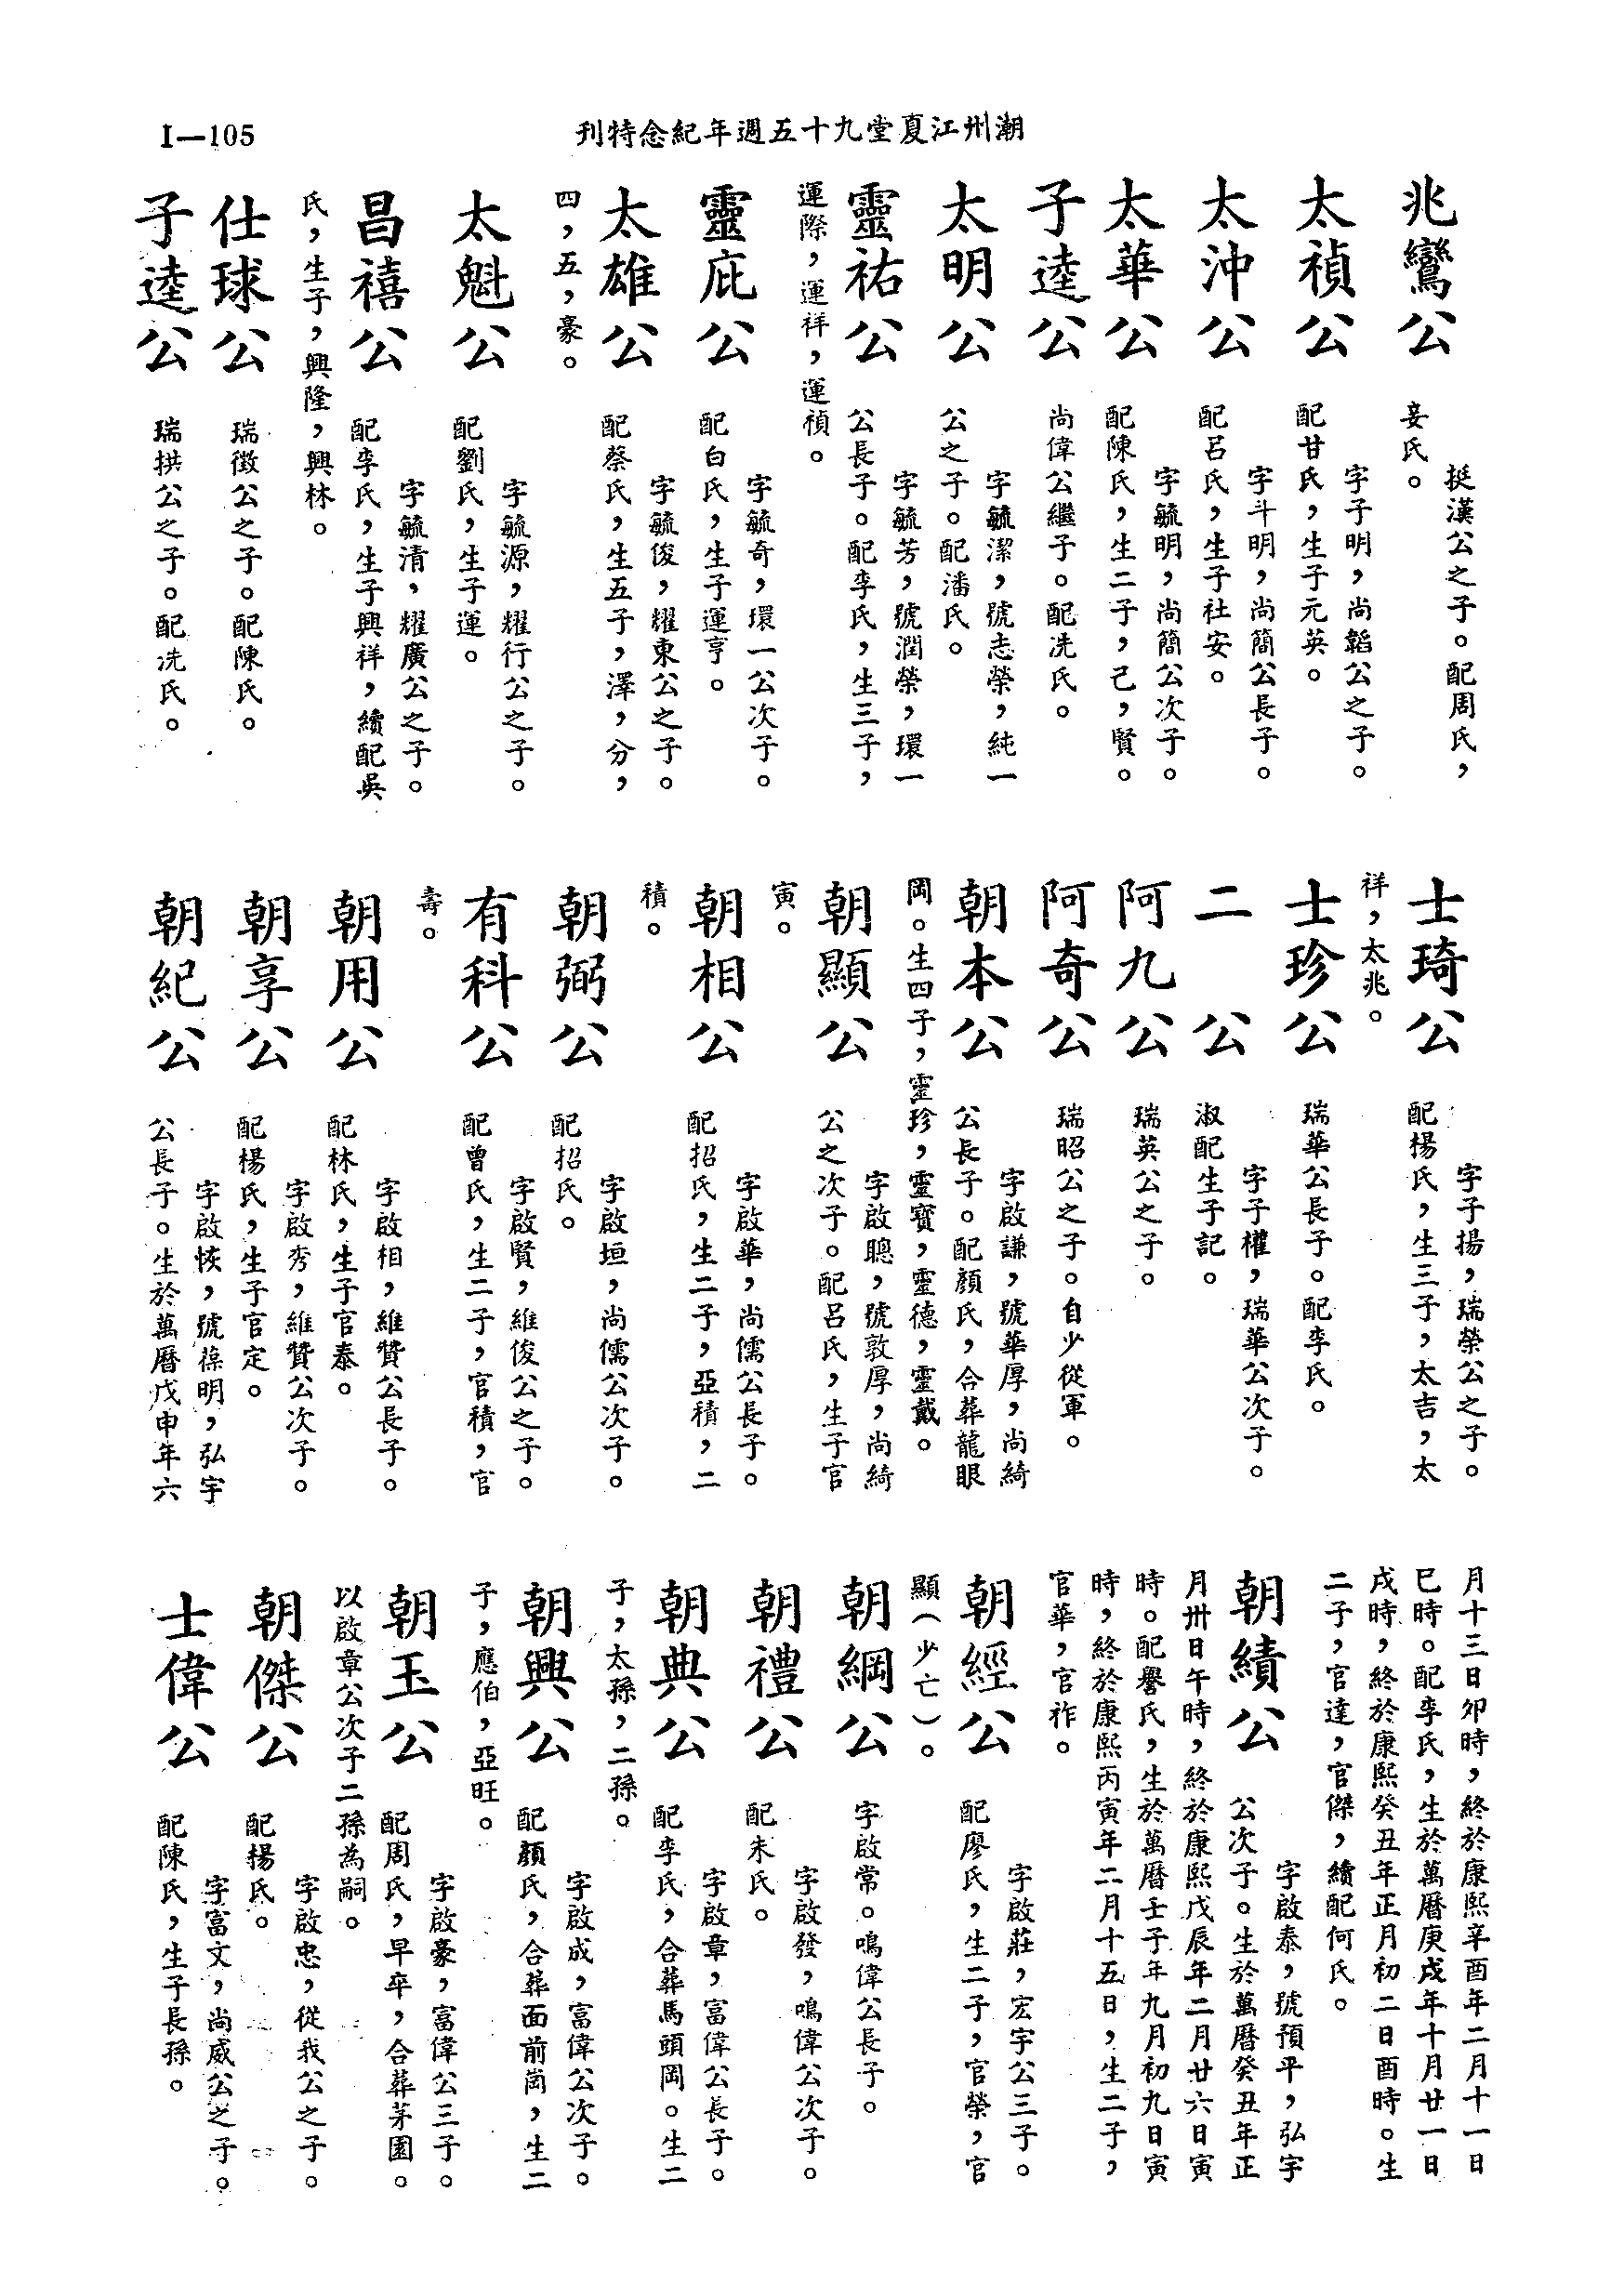 潮州江夏堂九十五週年紀念特刊
I—105
兆鸞公
挺漢公之子。配周氏，
妾氏。
太禎公
字子明，尚韜公之子。
配甘氏，生子元英。
太沖公
字斗明，尚簡公長子。
配呂氏，生子社安。
太華公
字毓明，尚簡公次子。
配陳氏，生二子，己，賢。
子逵公
尚偉公繼子。配冼氏。
太明公
字毓潔，號志榮，純一
公之子。配潘氏。
靈祐公
字毓芳，號潤榮，環一
公長子。配李氏，生三子，
運際，運祥，運禎。
靈庇公
字毓奇，環一公次子。
配白氏，生子運亨。
太雄公
字毓俊，耀東公之子。
配蔡氏，生五子，澤，分，
四，五，豪。
太魁公
字毓源，耀行公之子。
配劉氏，生子運。
昌禧公
字毓清，耀廣公之子。
配李氏，生子興祥，續配吳
氏，生子，興隆，興林。
仕球公
瑞徵公之子。配陳氏。
子逵公
瑞拱公之子。配冼氏。
士琦公
字子揚，瑞榮公之子。
配楊氏，生三子，太吉，太
祥，太兆。
士珍公
瑞華公長子。配李氏。
二公
字子權，瑞華公次子。
淑配生子記。
阿九公
瑞英公之子。
阿奇公
瑞昭公之子。自少從軍。
朝本公
字啟謙，號華厚，尚綺
公長子。配顏氏，合葬龍眼
岡。生四子，靈珍，靈寶，靈德，靈戴。
朝顯公
字啟聰，號敦厚，尚綺
公之次子。配呂氏，生子官
寅。
朝相公
字啟華，尚儒公長子。
配招氏，生二子，亞積，二
積。
朝弼公
字啟垣，尚儒公次子。
配招氏。
有科公
字啟賢，維俊公之子。
配曾氏，生二子，官積，官
壽。
朝用公
字啟相，維贊公長子。
配林氏，生子官泰。
朝享公
字啟秀，維贊公次子。
配楊氏，生子官定。
朝紀公
字啟恢，號葆明，弘宇
公長子。生於萬曆戊申年六
月十三日夘時，終於康熙辛酉年二月十一日
巳時。配李氏，生於萬曆庚戌年十月廿一日
戌時，終於康熙癸丑年正月初二日酉時。生
二子，官達，官傑，續配何氏。
朝績公
字啟泰，號預平，弘宇
公次子。生於萬曆癸丑年正
月卅日午時，終於康熙戊辰年二月廿六日寅
時。配譽氏，生於萬曆壬子年九月初九日寅
時，終於康熙丙寅年二月十五日，生二子，
官華，官祚。
朝經公
字啟莊，宏宇公三子。
配廖氏，生二子，官榮，官
顯（少亡）。
朝綱公
字啟常。鳴偉公長子。
朝禮公
字啟發，鳴偉公次子。
配朱氏。
朝典公
字啟章，富偉公長子。
配李氏，合葬馬頭岡。生二
子，太孫，二孫。
朝興公
字啟成，富偉公次子。
配顏氏，合葬面前崗，生二
子，應伯，亞旺。
朝玉公
字啟豪，富偉公三子。
配周氏，早卒，合葬茅園。
以啟章公次子二孫為嗣。
朝傑公
字啟忠，從我公之子。
配楊氏。
士偉公
字富文，尚威公之子。
配陳氏，生子長孫。